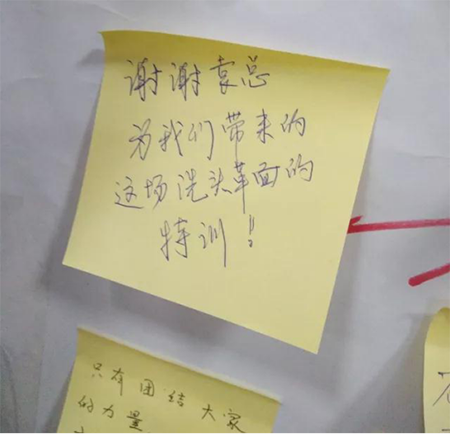 谢谢袁总
为我们带来的
这场洗头革面的
特训!!
只有团结大家
的力量